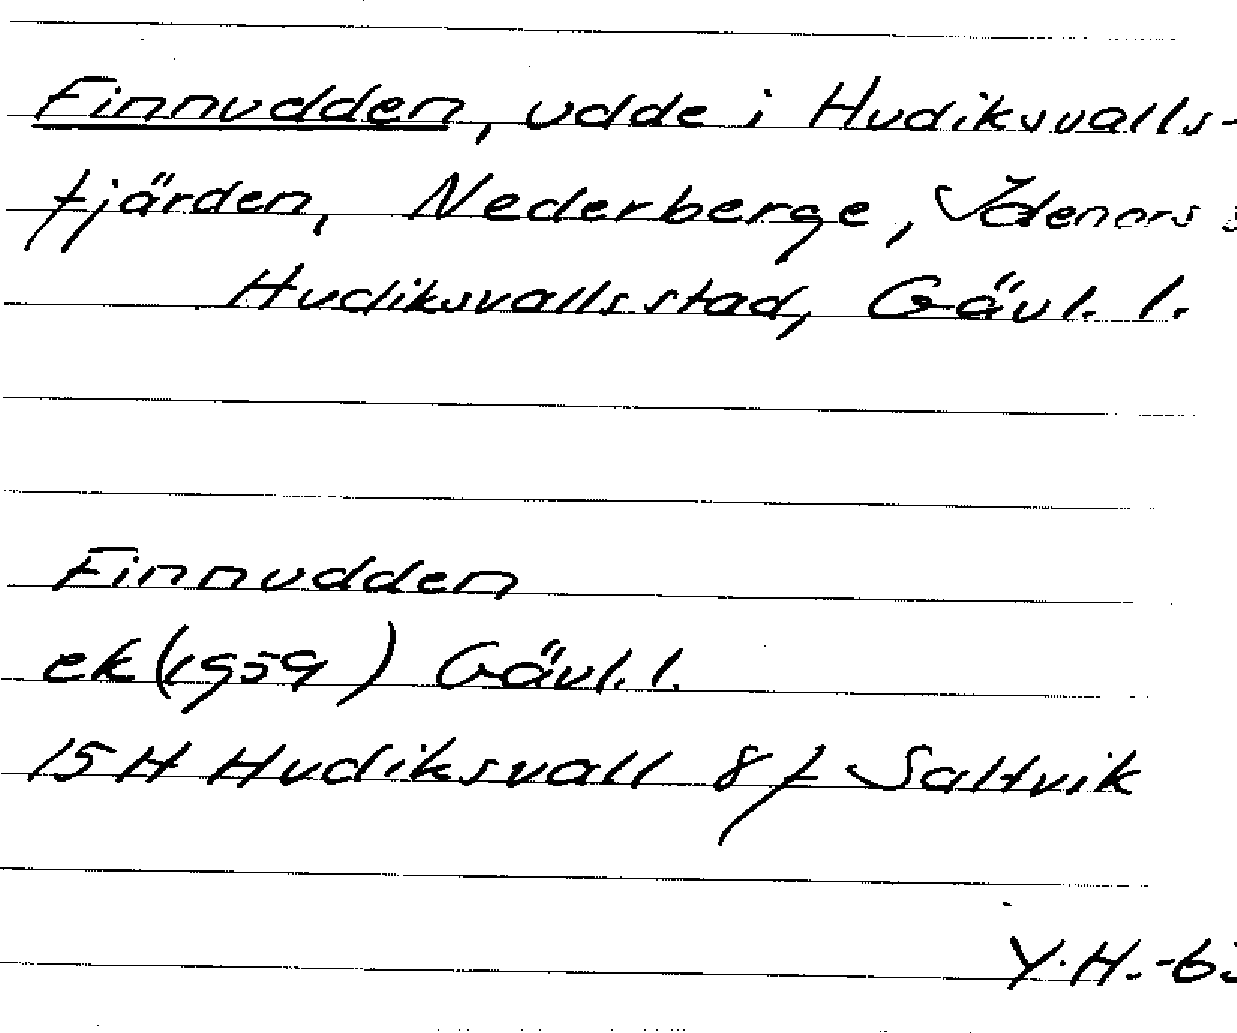 Finnudden, udde i Hudiksvalls-
fjärden, Nederberge, Idenors s
Hudiksvalls stad, Gävl. l.
Finnudden
ek (1959) Gävl. l.
15H Hudiksvall 8f Saltvik
Y.H.-63